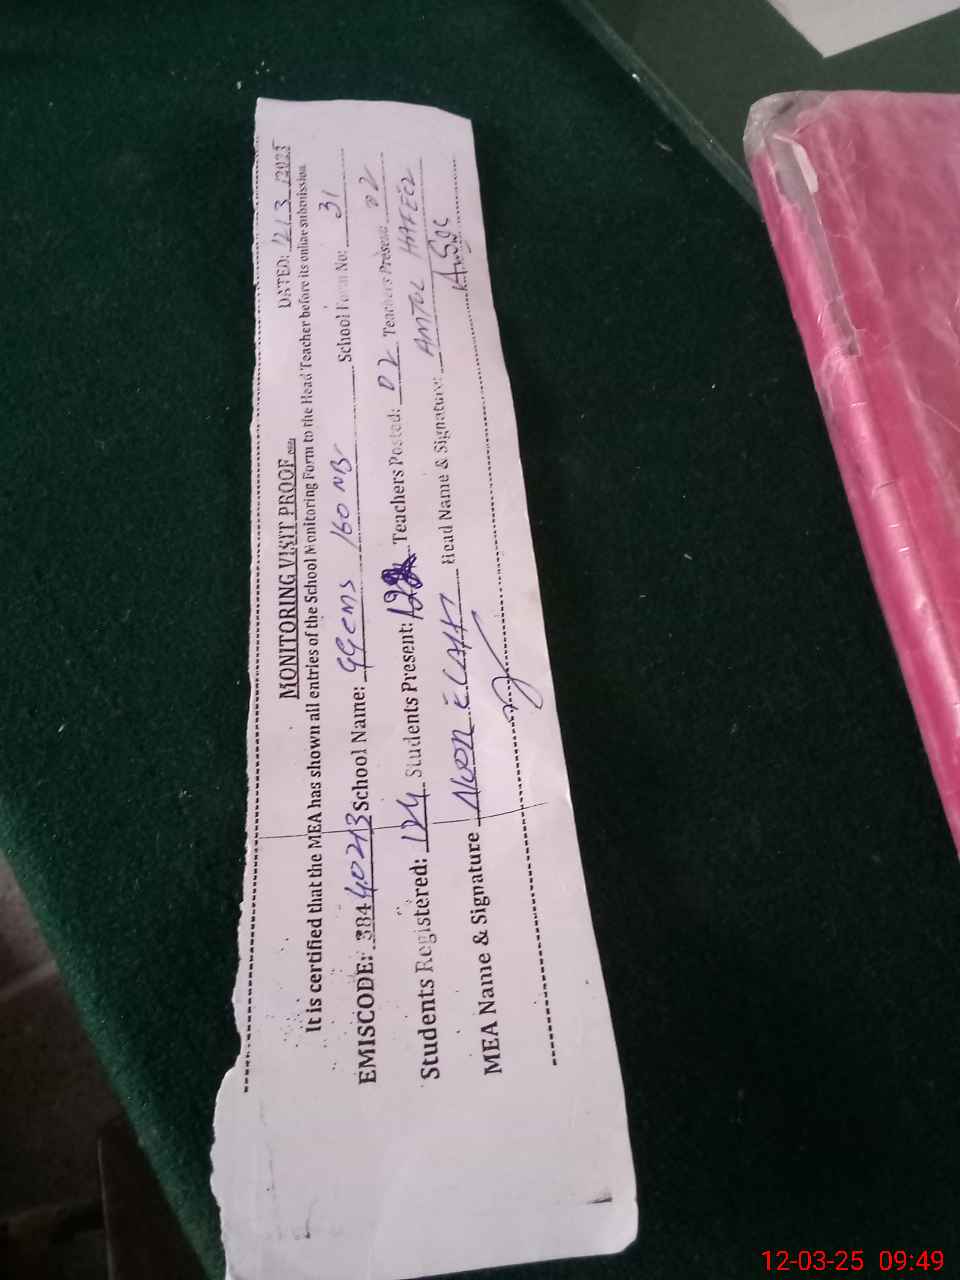 MONITORING VISIT PROOF DATED: 12/3/2025
It is certified that the MEA has shown all entries of the School Monitoring Form to the Head Teacher before its online submission.
EMISCODE: 38440213 School Name: GGCMS 160 NB School Form No: 31
Students Registered: 124 Students Present: Teachers Posted: 02 Teachers Present 02
MEA Name & Signature Head Name & Signature: AMTUL HAFEEZ
12-03-25 09:49